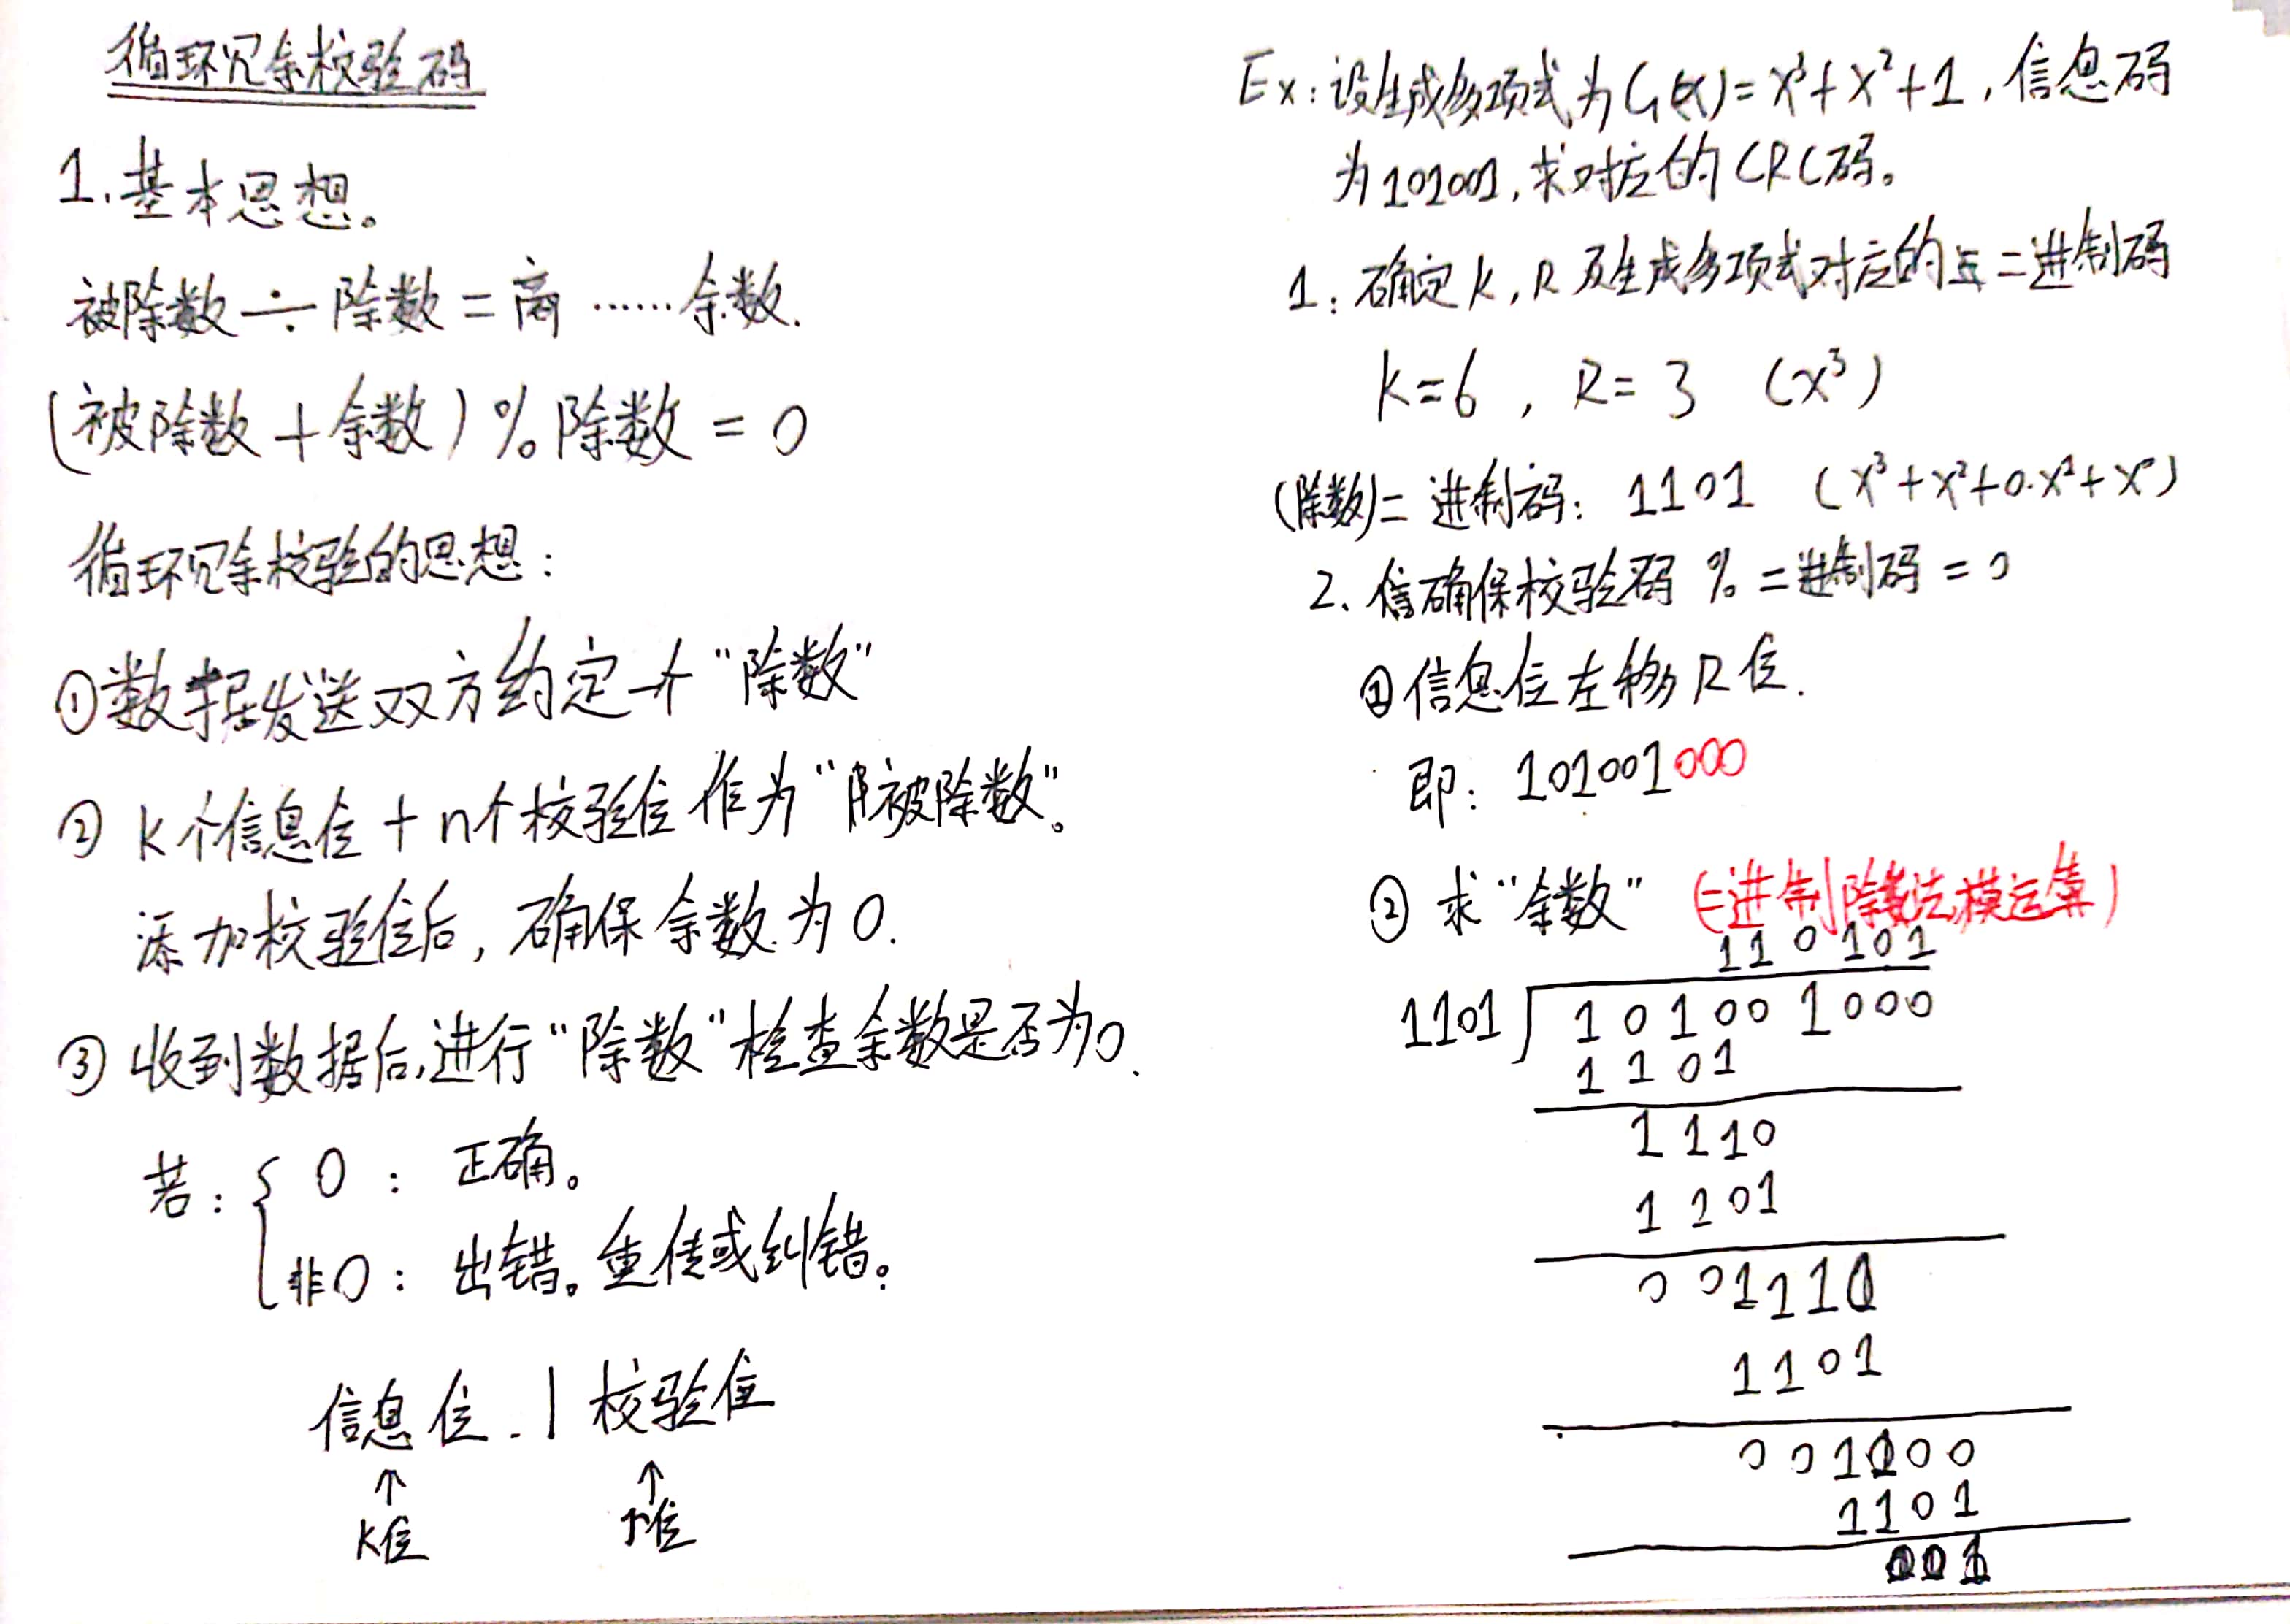 循环冗余校验码
1.基本思想。
被除数 ÷ 除数 = 商 …… 余数.
(被除数 + 余数) % 除数 = 0
循环冗余校验的思想:
①数据发送双方约定一个“除数”
② K个信息位 + n个校验位 作为“被除数”。
添加校验位后, 确保余数为0.
③ 收到数据后,进行“除数”检查余数是否为0.
若: { 0 : 正确。
非0: 出错。重传或纠错。
信息位 | 校验位
↑ ↑
K位 r位
Ex: 设生成多项式为G(x)=x³+x²+1, 信息码
为101001, 求对应的CRC码。
1: 确定K, R及生成多项式对应的二进制码
K=6 , R=3 (x³)
(除数)二进制码: 1101 (x³+x²+0·x¹+x⁰)
2. 确保校验码 % 二进制码 = 0
①信息位左移R位.
即: 101001000
② 求“余数” (二进制除法,模运算)
110101
1101 101001000
1101
1110
1101
001110
1101
001100
1101
001